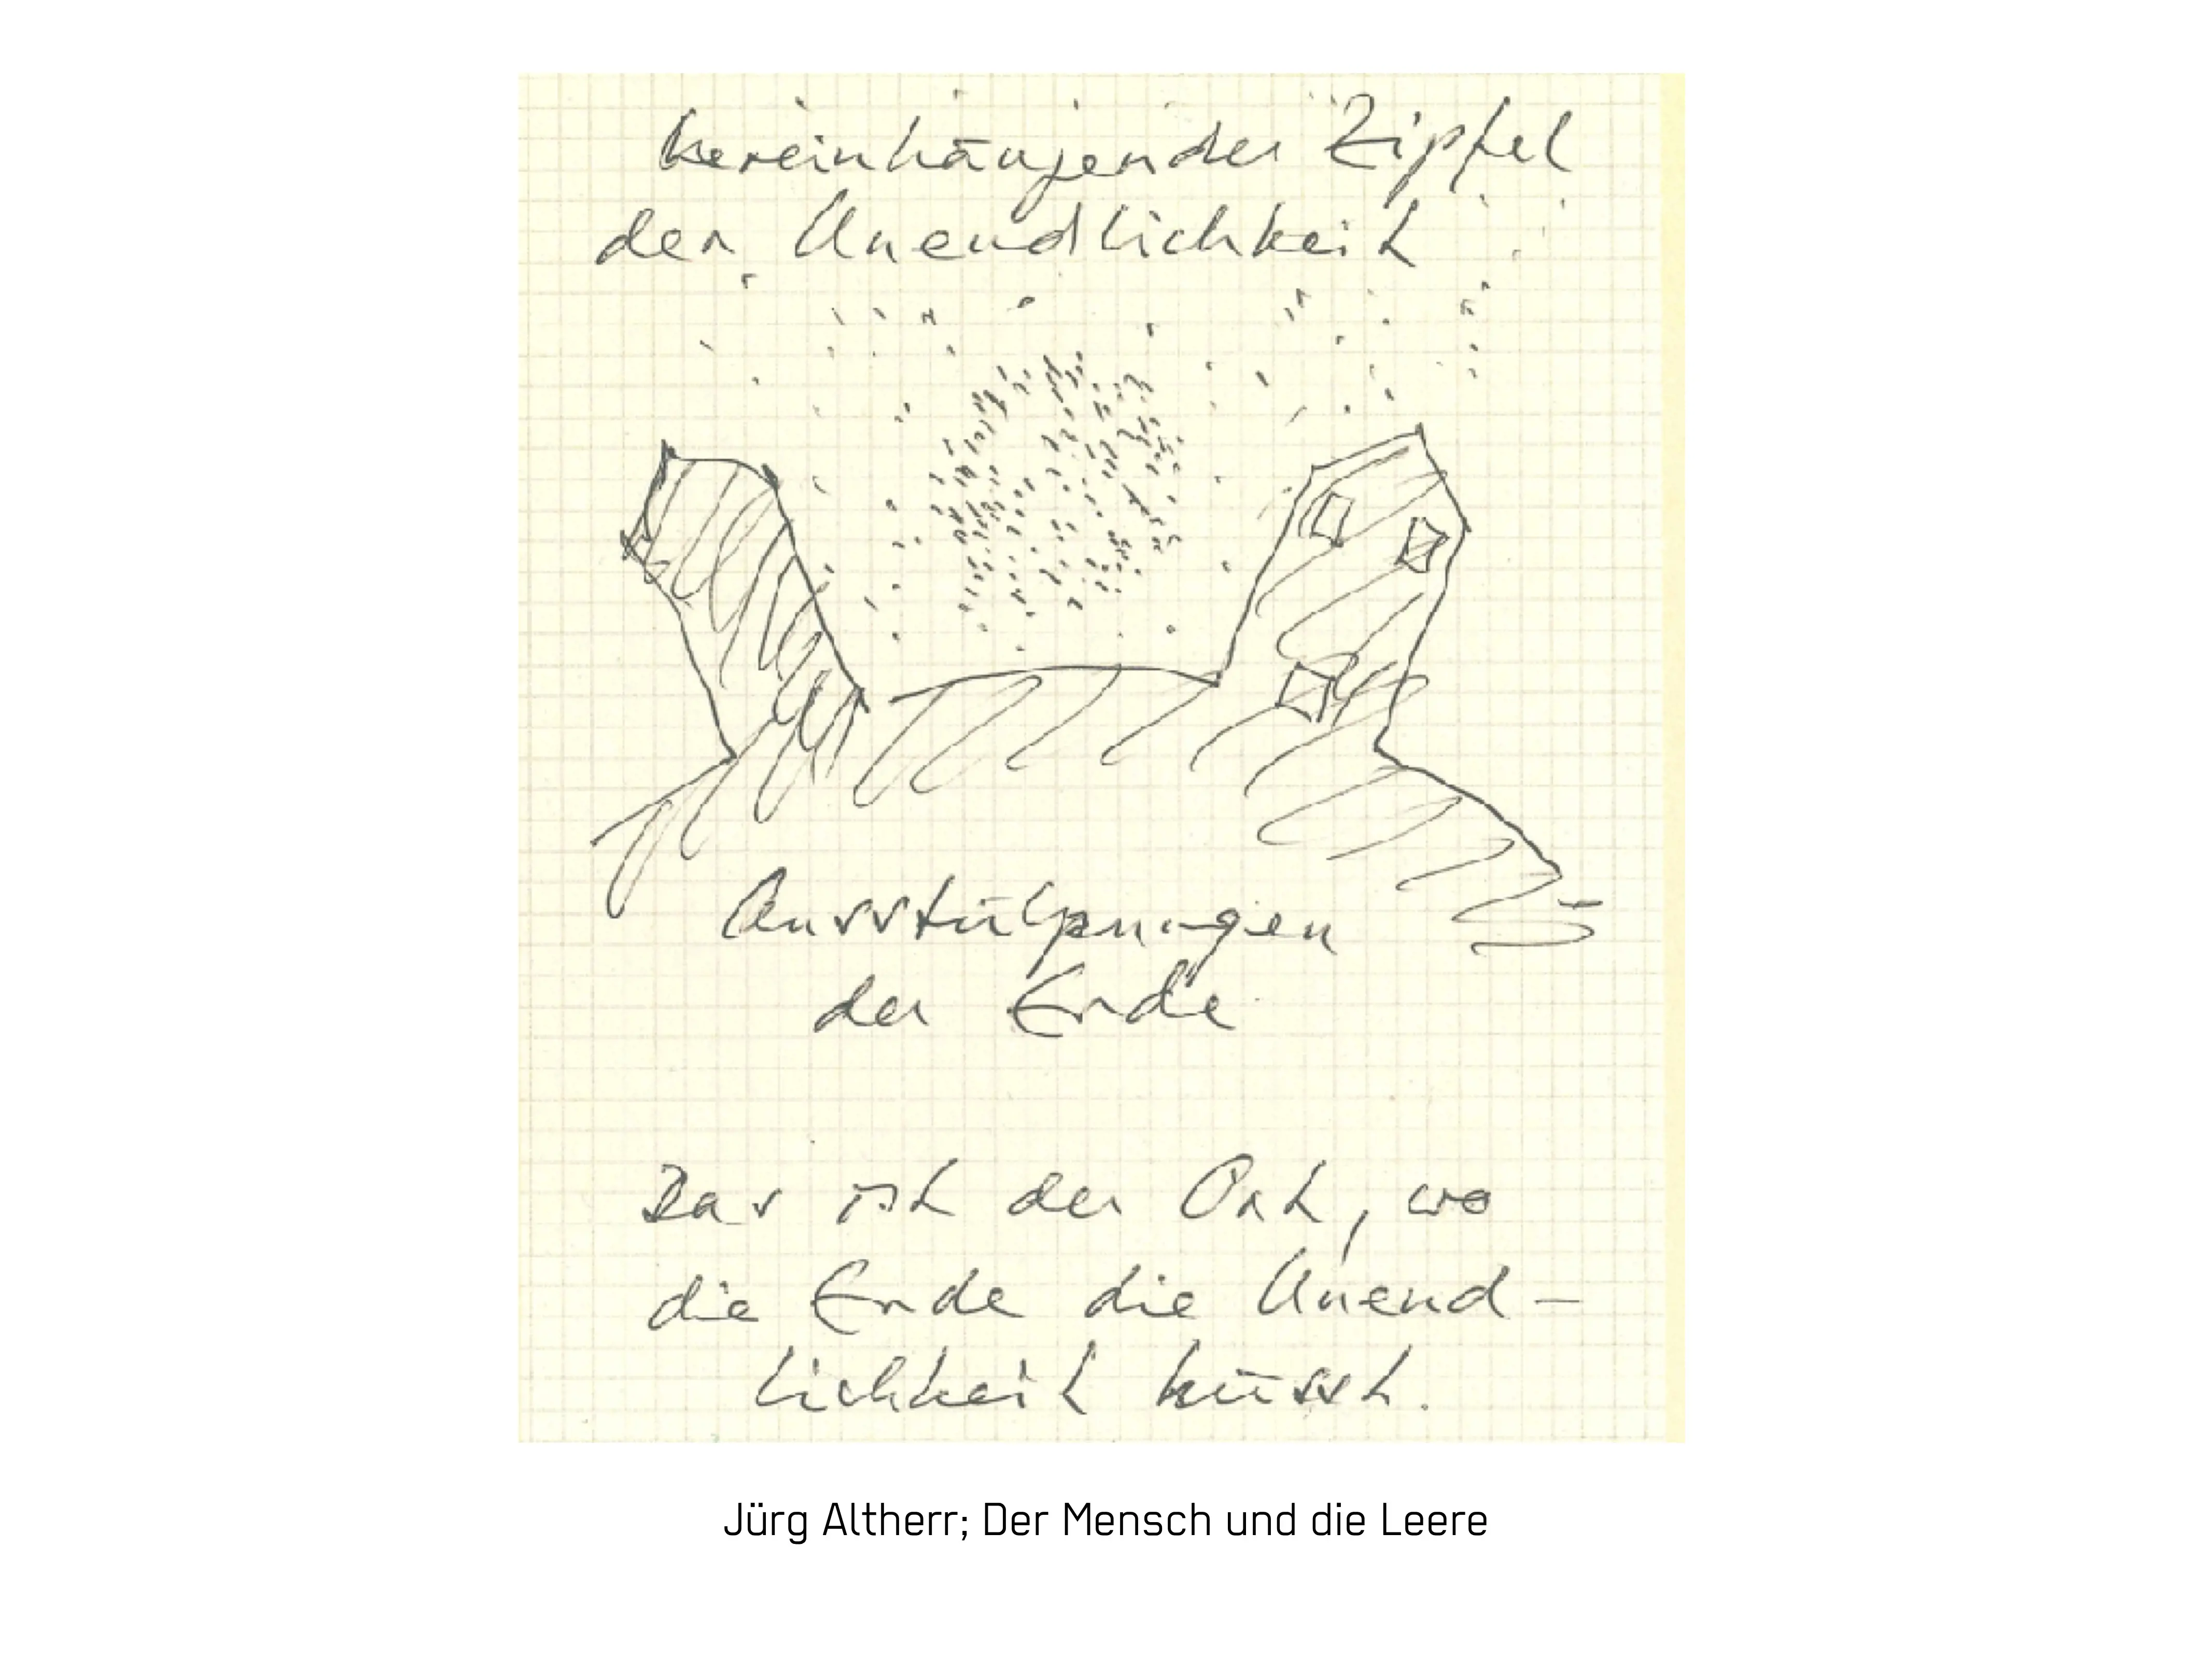 hereinhängender Zipfel
der Unendlichkeit
Ausstülpungen
der Erde
Das ist der Ort, wo
die Erde die Unend-
lichkeit küsst.
Jürg Altherr; Der Mensch und die Leere